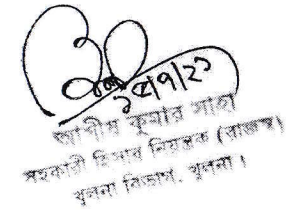 ২৫/৭/২১
আশীষ কুমার সাহা
সহকারী হিসাব নিয়ন্ত্রক (রাজস্ব)
খুলনা বিভাগ, খুলনা।